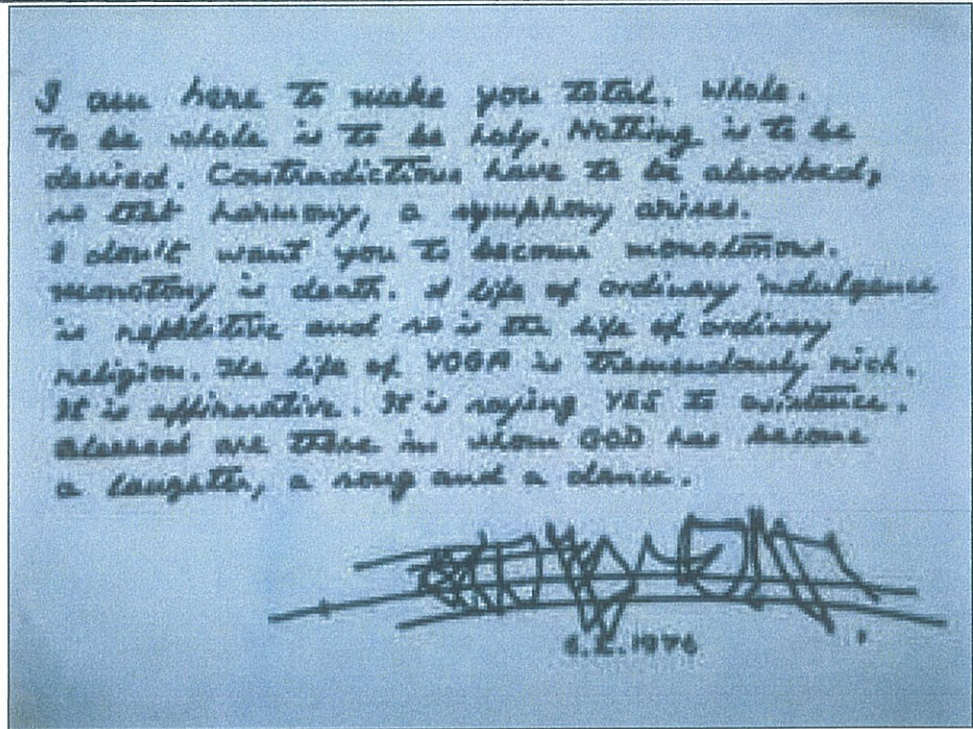 I am here to make you total, whole.
To be whole is to be holy. Nothing is to be
denied. Contradictions have to be absorbed,
so that harmony, a symphony arises.
I don't want you to become monotonous.
monotony is death. A life of ordinary indulgence
is repetitive and so is the life of ordinary
religion. The life of YOGA is tremendously rich.
It is affirmative. It is saying YES to existence.
Blessed are those in whom GOD has become
a laughter, a song and a dance.
1976